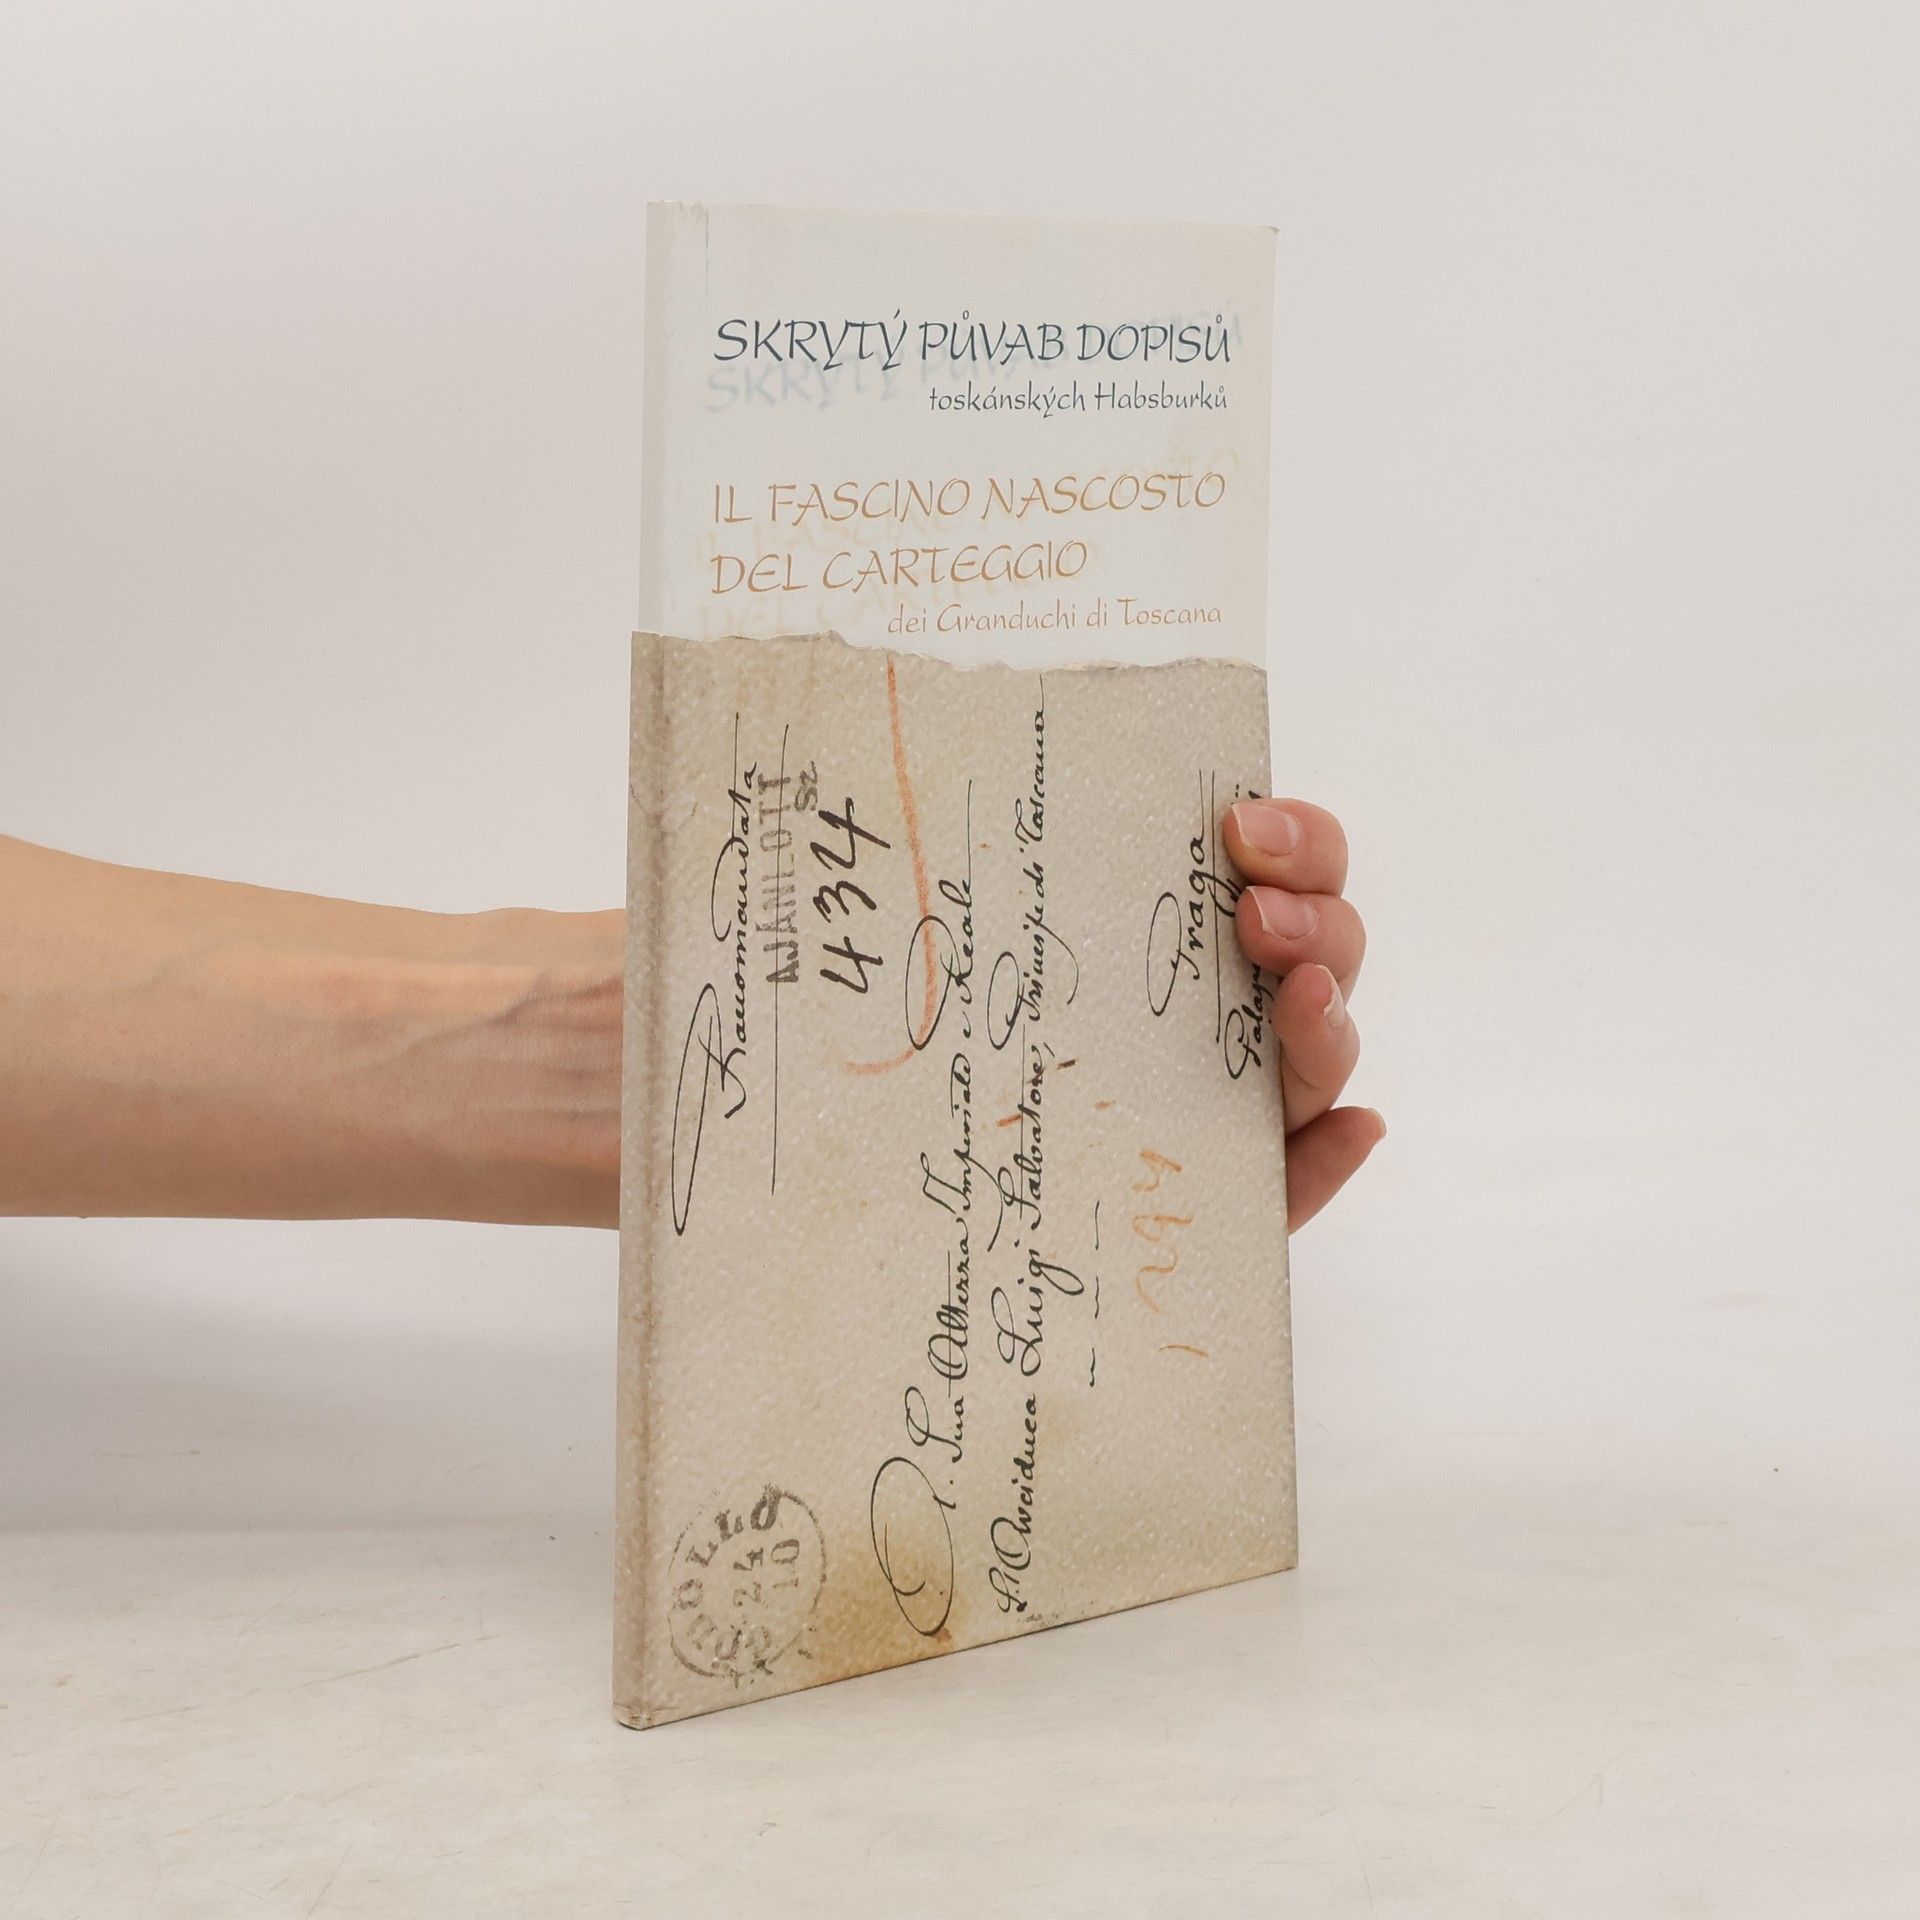 SKRYTÝ PŮVAB DOPISŮ
toskánských Habsburků
IL FASCINO NASCOSTO
DEL CARTEGGIO
dei Granduchi di Toscana
Raccomandata
434
A. Sua Altezza Imperiale e Reale
L'Arciduca Luigi Salvatore, Principe di Toscana
Praga
24
10